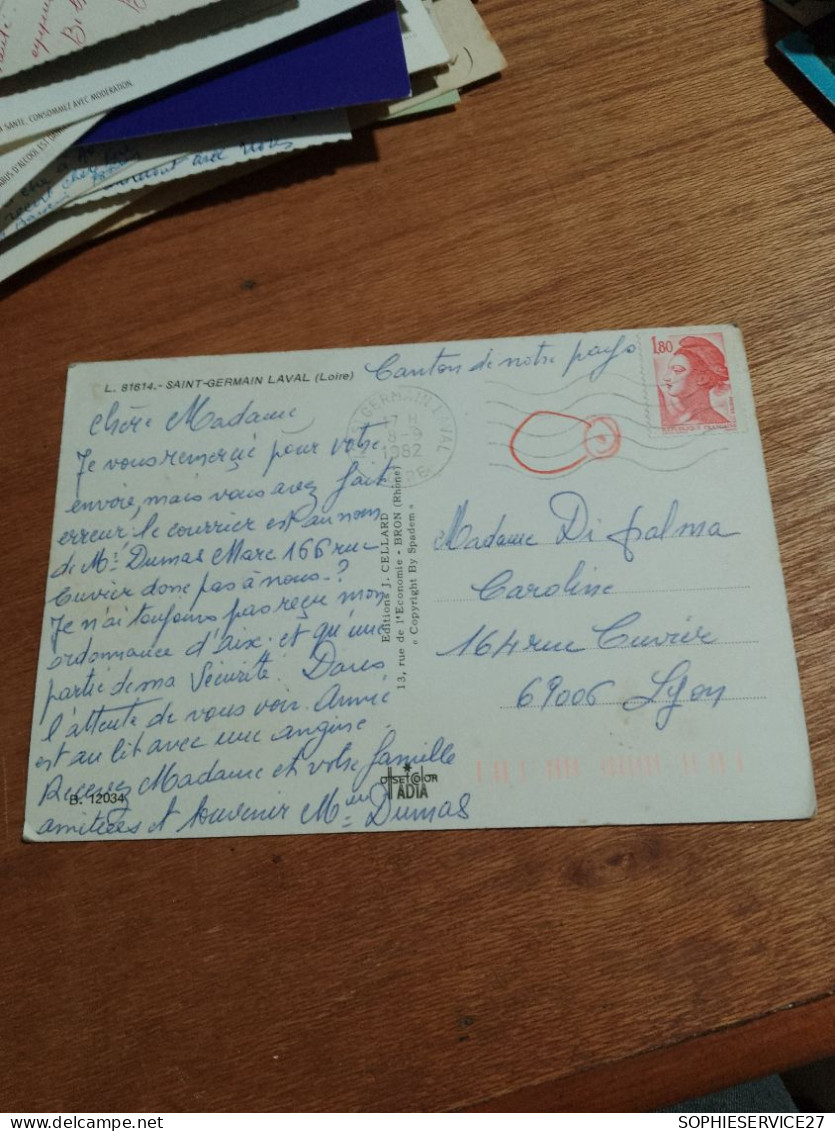 A SANTE, CONSOMMEZ AVEC MODERATION.
L. 81614.- SAINT-GERMAIN LAVAL (Loire)
Canton de notre pays
1,80
REPUBLIQUE FRANÇAISE
ST GERMAIN LAVAL
17 H
8-9
1982
Chère Madame
Je vous remerçie pour votre
envoie, mais vous avez fait
erreur le courrier est au nom
de Mr Dumas Marc 166 rue
Cuvier donc pas à nous.?
Je n'ai toujours pas reçu mon
ordonnance d'aix. et qu'une
partie de ma Sécurité. Dans
l'attente de vous voir. Annie
est au lit avec une angine.
Recevez Madame et votre famille
amitiées et souvenir Mme Dumas
B. 12034
Editions J. CELLARD
13, rue de l'Economie - BRON (Rhône)
« Copyright By Spadem »
OFFSETCOLOR
IADIA
Madame Di Palma
Caroline
164 rue Cuvier
69006 Lyon
SOPHIESERVICE27